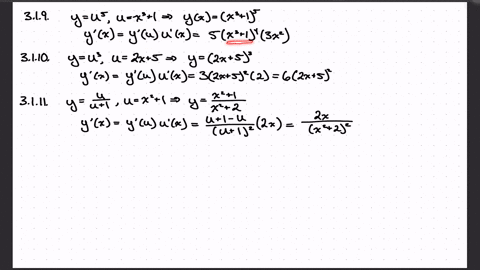 3.1.9. y=u⁵, u=x³+1 ⇒ y(x)=(x³+1)⁵
y'(x) = y'(u) u'(x) = 5(x³+1)⁴(3x²)
3.1.10. y=u³, u=2x+5 ⇒ y=(2x+5)³
y'(x) = y'(u) u'(x) = 3(2x+5)²(2) = 6(2x+5)²
3.1.11. y = u/(u+1), u=x²+1 ⇒ y = (x²+1)/(x²+2)
y'(x) = y'(u) u'(x) = (u+1-u)/(u+1)² (2x) = 2x/(x²+2)²